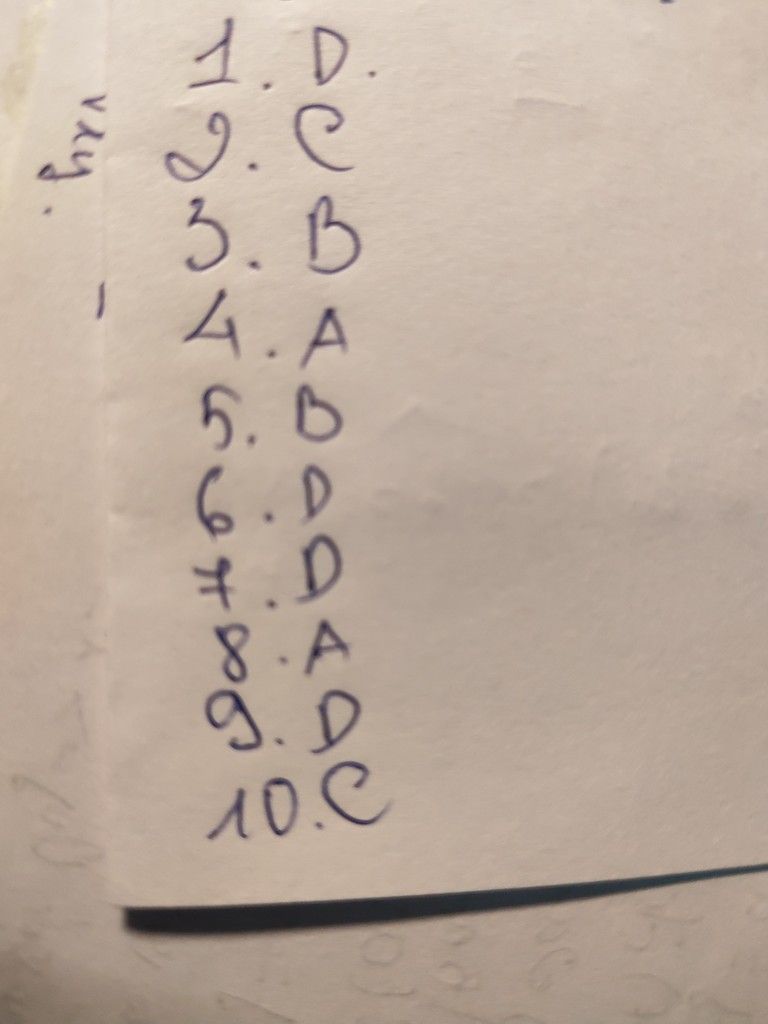 1. D.
2. C
3. B
4. A
5. B
6. D
7. D
8. A
9. D
10. C